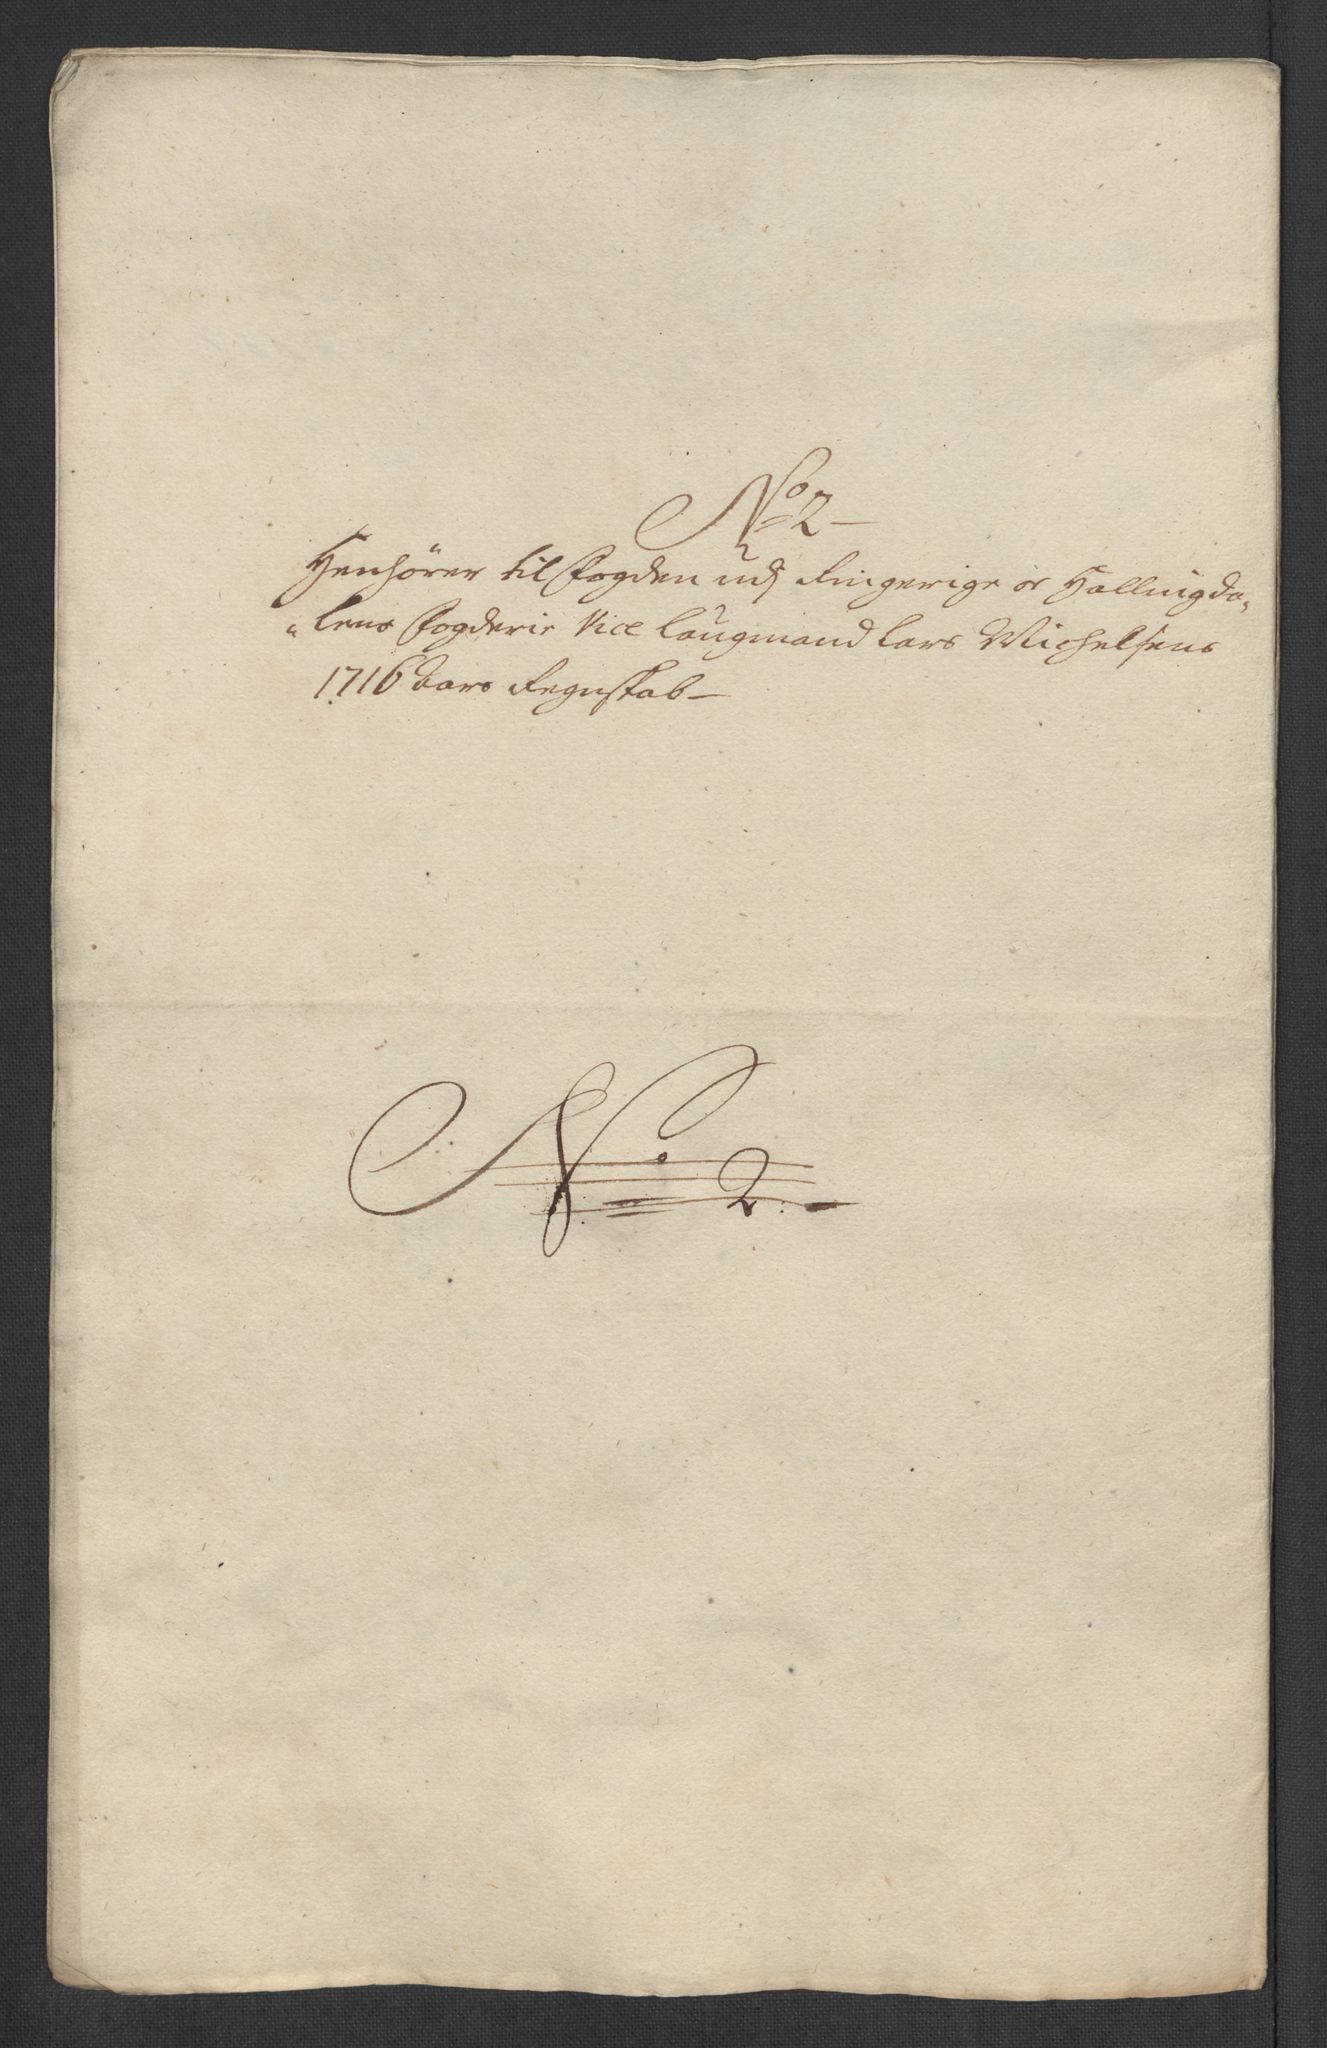 No 2
Henhører til fogden udj Ringerige oc Hallingda-
lens fogderie Vice Laugmand Lars Michelsens
1716 Aars Regnskab
No 2